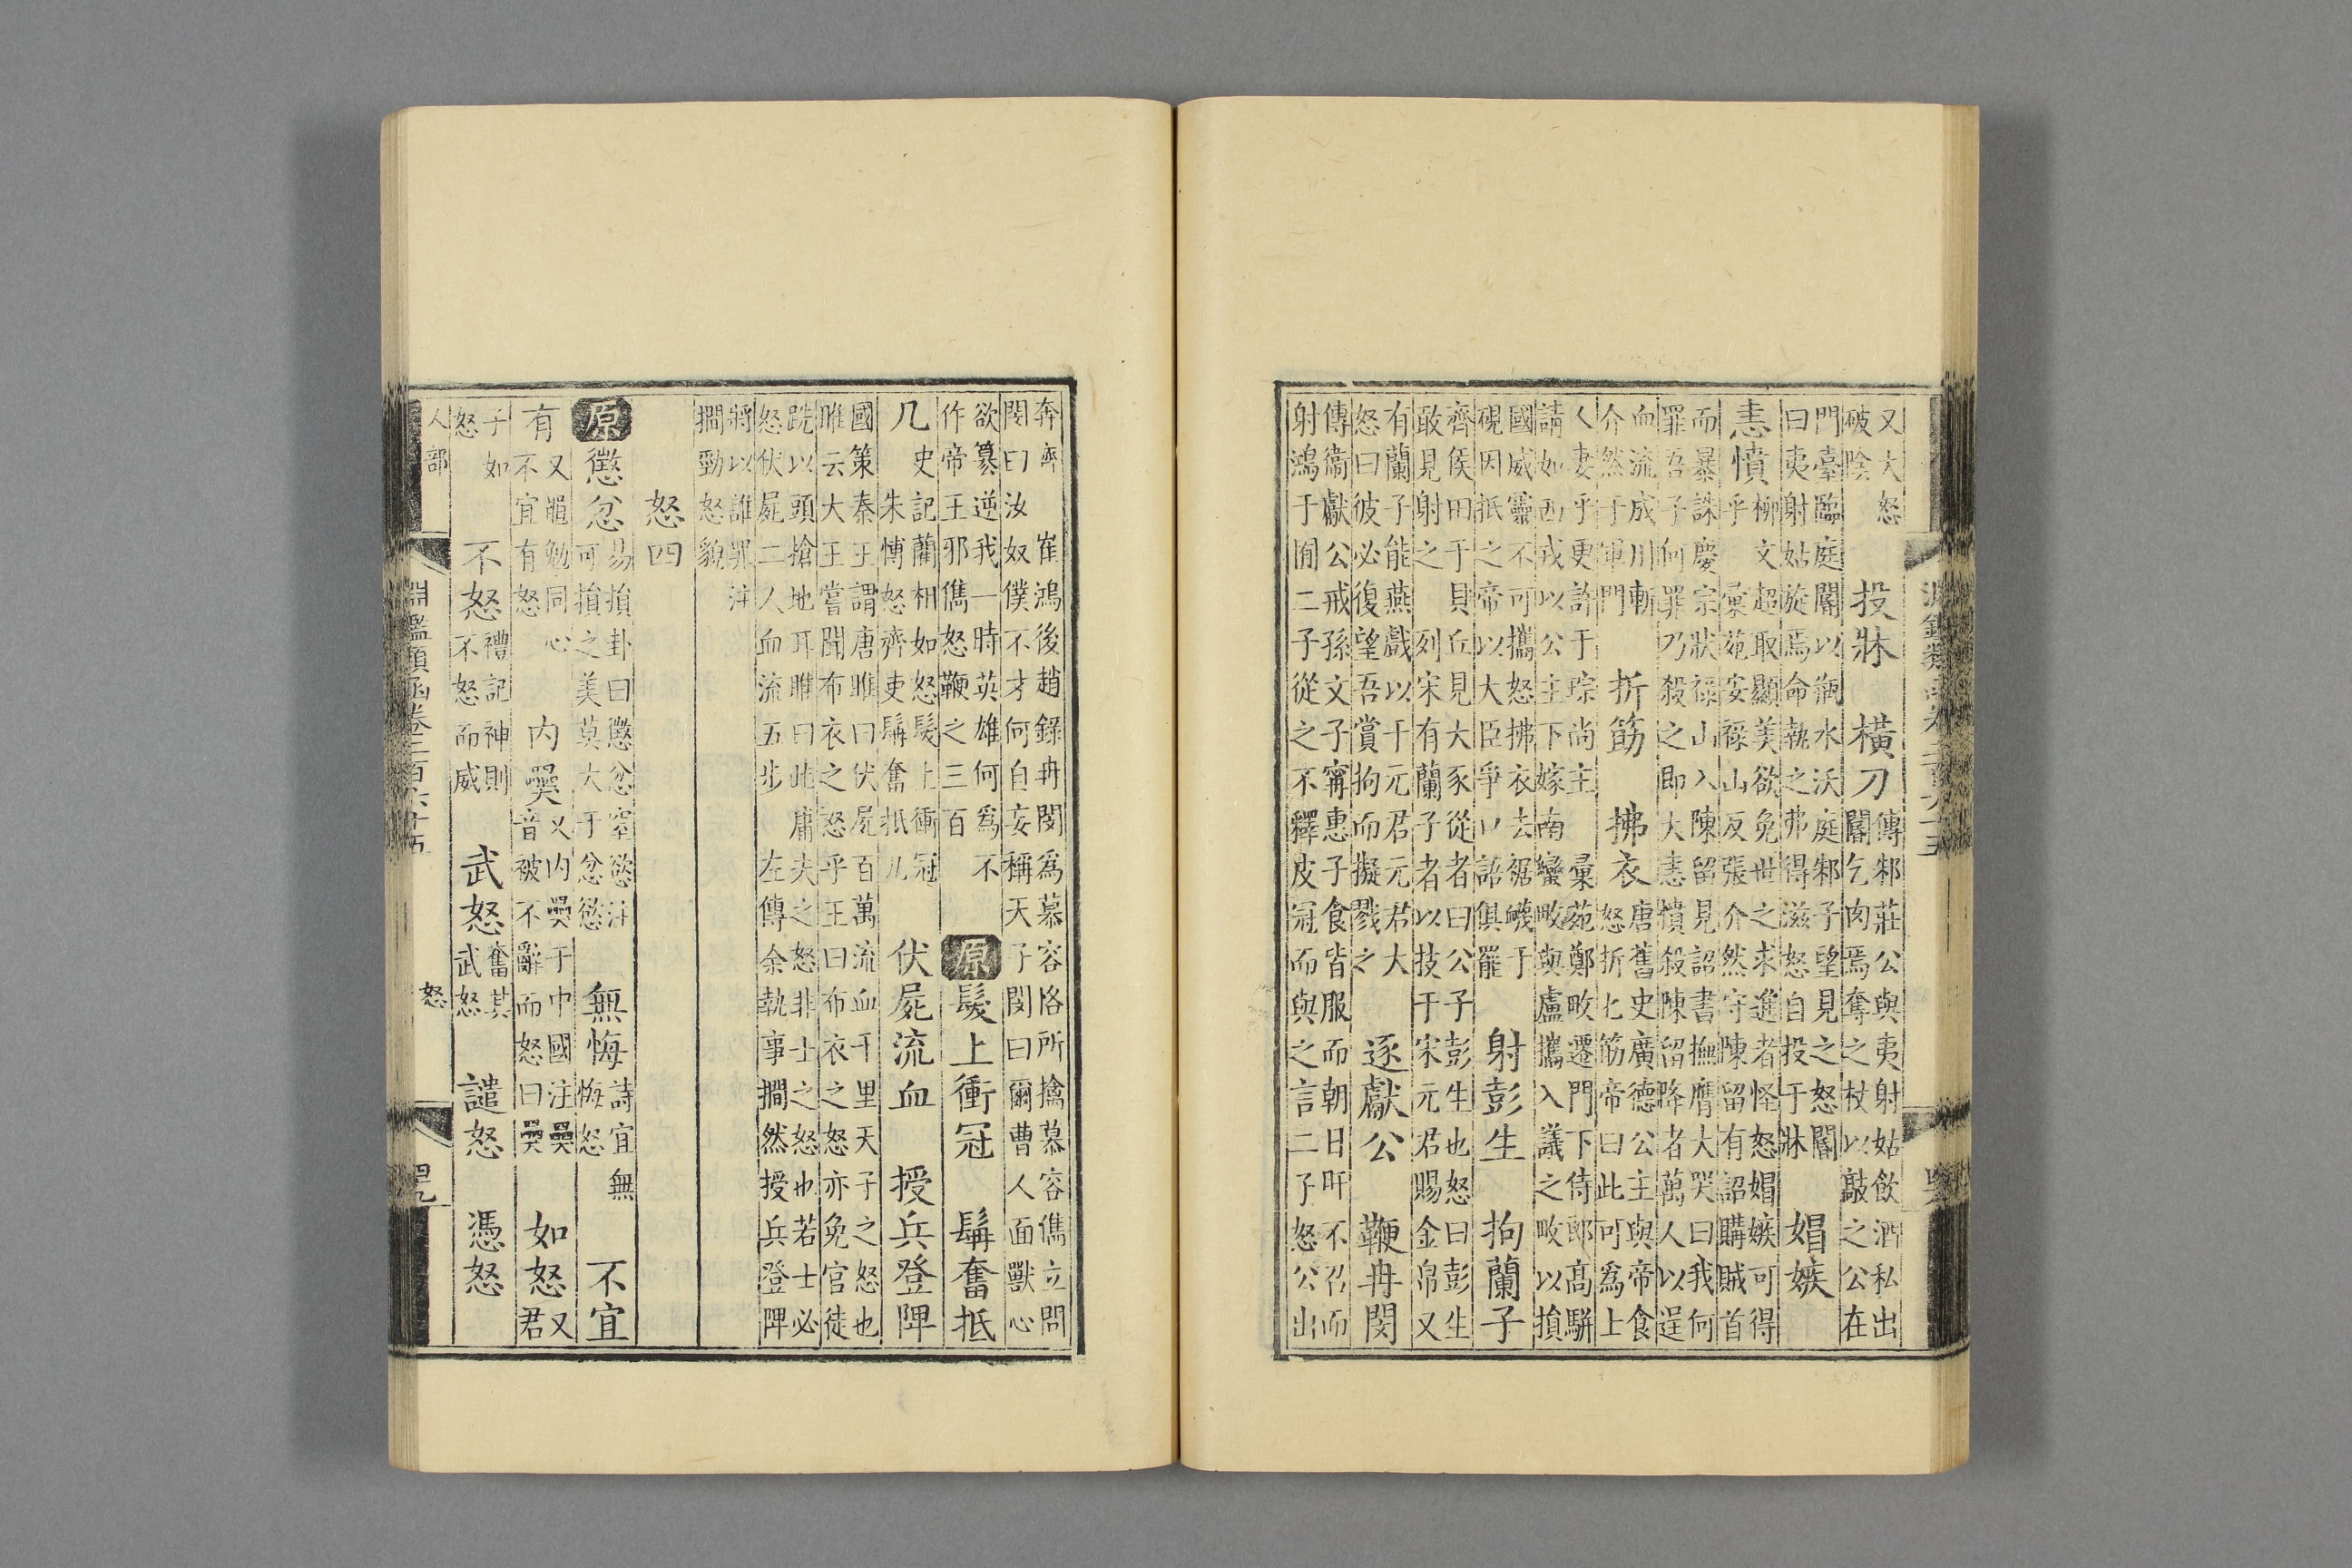 又大怒
破陰
投牀　橫刀
傳邾莊公與夷射姑飲酒私出
閽乞肉焉奪之杖以敲之公在
門臺臨庭閽以瓶水沃庭邾子望見之怒閽
曰夷射姑旋焉命執之弗得滋怒自投于牀
媢嫉
恚憤
柳文超取顯美欲免世之求進者怪怒媢嫉可得
乎　彙苑安祿山反張介然守陳留有詔購賊首
而暴誅慶宗狀祿山入陳留見詔書撫膺大哭曰我何
罪吾子何罪乃殺之即大恚憤殺陳留降者萬人以逞
血流成川斬
介然于軍門
折筯　拂衣
唐舊史廣德公主與帝食
怒折匕筯帝曰此可爲上
人妻乎更許于琮尚主　彙苑鄭畋遷門下侍郎高駢
請如西戎以公主下嫁南蠻畋與盧攜入議之畋以損
國威靈不可攜怒拂衣去裾于
硯因抵之帝以大臣爭口詔俱罷
射彭生　拘蘭子
齊侯田于貝丘見大豕從者曰公子彭生也怒曰彭生
敢見射之　列宋有蘭子者以技干宋元君賜金帛又
有蘭子能燕戲以干元君元君大
怒曰彼必復望吾賞拘而擬戮之
逐獻公　鞭冉閔
傳衞獻公戒孫文子甯惠子食皆服而朝日旰不召而
射鴻于囿二子從之不釋皮冠而與之言二子怒公出
奔齊　崔鴻後趙錄冉閔爲慕容恪所擒慕容儁立問
閔曰汝奴僕不才何自妄稱天子閔曰爾曹人面獸心
欲篡逆我一時英雄何爲不
作帝王邪儁怒鞭之三百
原　髮上衝冠　鬅奮抵
几
史記藺相如怒髮上衝冠
朱博怒齊吏鬅奮抵几
伏屍流血　授兵登陴
國策秦王謂唐雎曰伏屍百萬流血千里天子之怒也
雎云大王嘗聞布衣之怒乎王曰布衣之怒亦免官徒
跣以頭搶地耳雎曰此庸夫之怒非士之怒也若士必
怒伏屍二人血流五步　左傳余執事撊然授兵登陴
將以誰罪注
撊勁怒貌
怒四
原　懲忿
易損卦曰懲忿窒慾注
可損之美莫大于忿慾
無悔
詩宜無
悔怒
不宜
有
又黽勉同心
不宜有怒
內奰
又內奰于中國注奰
音被不辭而怒曰奰
如怒
又
君
子如
怒
不怒
禮記神則
不怒而威
武怒
奮其
武怒
譴怒　憑怒
人部
淵鑑類函卷三百六十五
怒